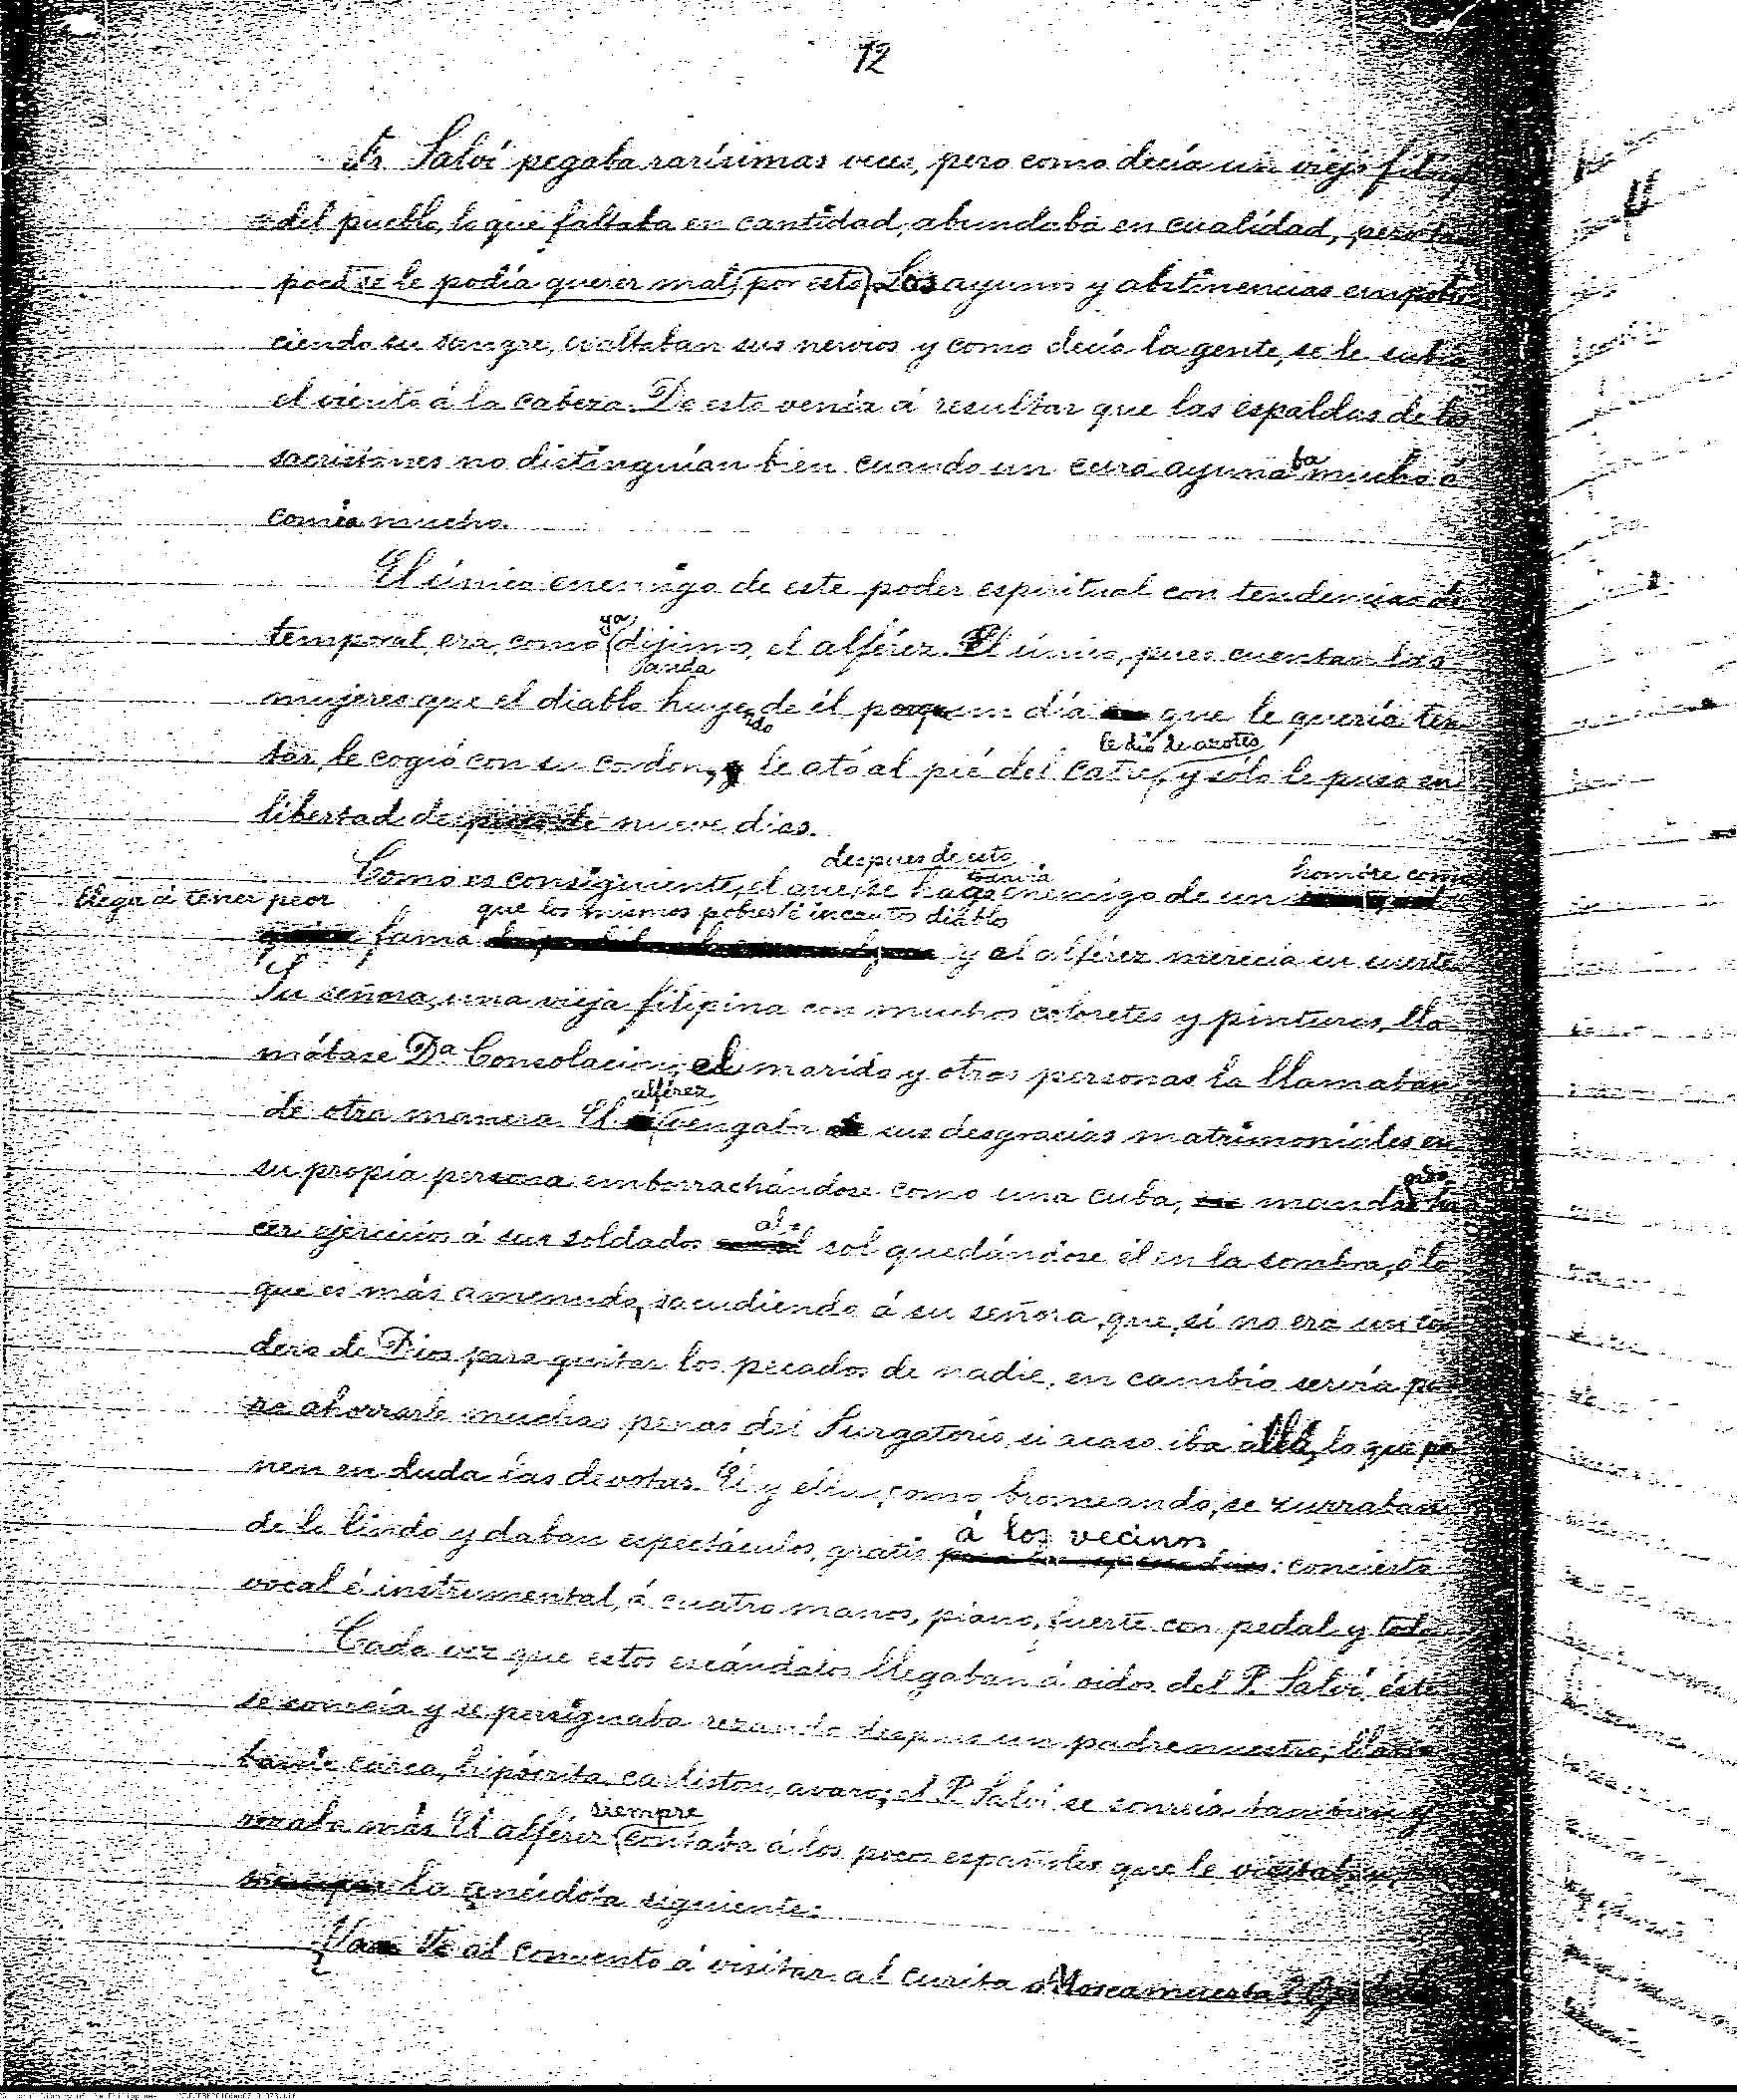 72
Fr. Salví pegaba rarísimas veces, pero como decía un viejo
del pueblo, lo que faltaba en cantidad, abundaba en cualidad,
poco se le podía querer mal por esto. Los ayunos y abstinencias empobre
ciendo su sangre, exaltaban sus nervios y como decía la gente, se le subía
el viento á la cabeza. De esto venía á resultar que las espaldas de los
sacristanes no distinguían bien cuando un cura ayunaba mucho ó
comía mucho.
El único enemigo de este poder espiritual con tendencias de
temporal, era, como ya dijimos, el alférez. El único, pues cuentan las
anda
mujeres que el diablo huyendo de él porque un día que le quería ten
le dió de azotes
tar, le cogió con su cordon, le ató al pié del catre, y sólo le puso en
libertad de nueve dias.
despues de esto todavía hombre como
Como es consiguiente, el que se hace enemigo de un
llega á tener peor
que los mismos pobres é incautos diablos
fama y el alférez merecía su suerte.
Su señora, una vieja filipina con muchos coloretes y pinturas, lla
mábase Dª Consolacion; el marido y otras personas la llamaban
de otra manera. El alférez vengaba sus desgracias matrimoniales en
su propia persona emborrachándose como una cuba, mandando ha
cer ejercicios á sus soldados al sol quedándose él en la sombra, ó lo
que es más amenudo, sacudiendo á su señora, que, si no era un cor
dero de Dios para quitar los pecados de nadie, en cambio servía pa
ra ahorrarle muchas penas del Purgatorio, si acaso iba allá, lo que po
nen en duda las devotas. Él y ella, como bromeando, se zurraban
de lo lindo y daban espectáculos gratis á los vecinos: concierto
vocal é instrumental, á cuatro manos, piano, fuerte con pedal y todo.
Cada vez que estos escándalos llegaban á oidos del P. Salví, éste
se sonreía y se persignaba rezando despues un padrenuestro; llamá
banle carca, hipócrita, carliston, avaro; el P. Salví se sonreía tambien y
rezaba más. El alférez siempre contaba á los pocos españoles que le visitaban
la anécdota siguiente:
Va V. al convento á visitar al curita Moscamuerta?